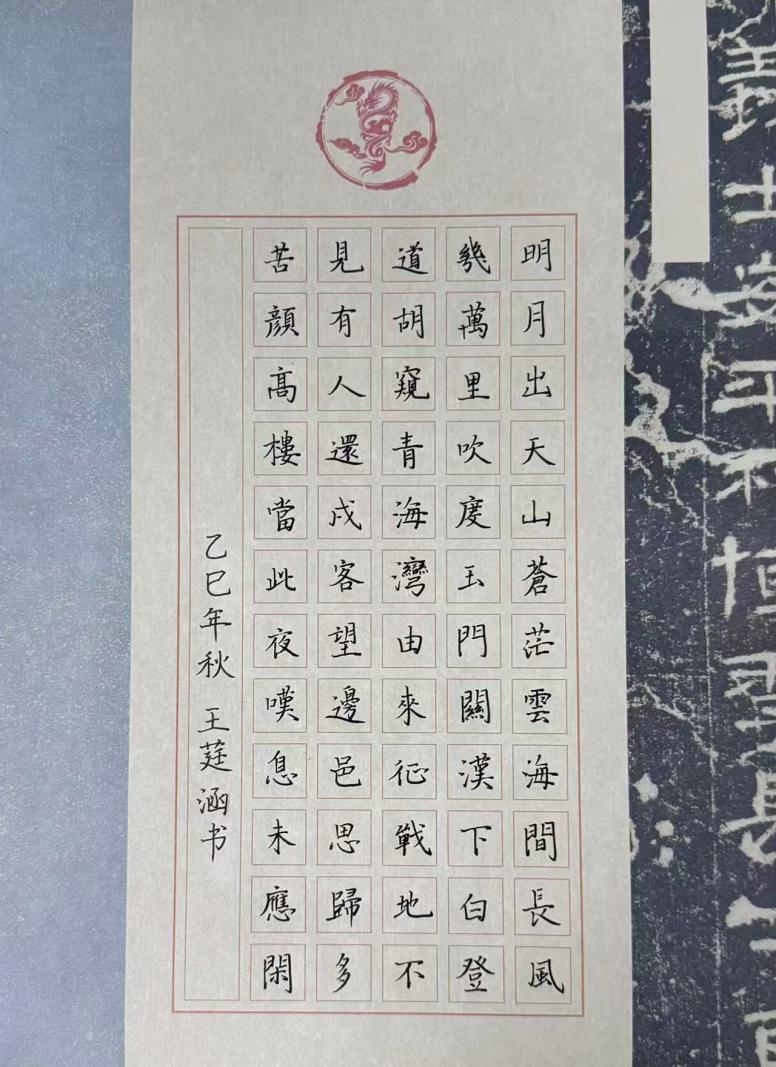 義士安平不恒羣長
明月出天山蒼茫雲海間長風
幾萬里吹度玉門關漢下白登
道胡窺青海灣由來征戰地不
見有人還戍客望邊邑思歸多
苦顏高樓當此夜嘆息未應閑
乙巳年秋 王莛涵书